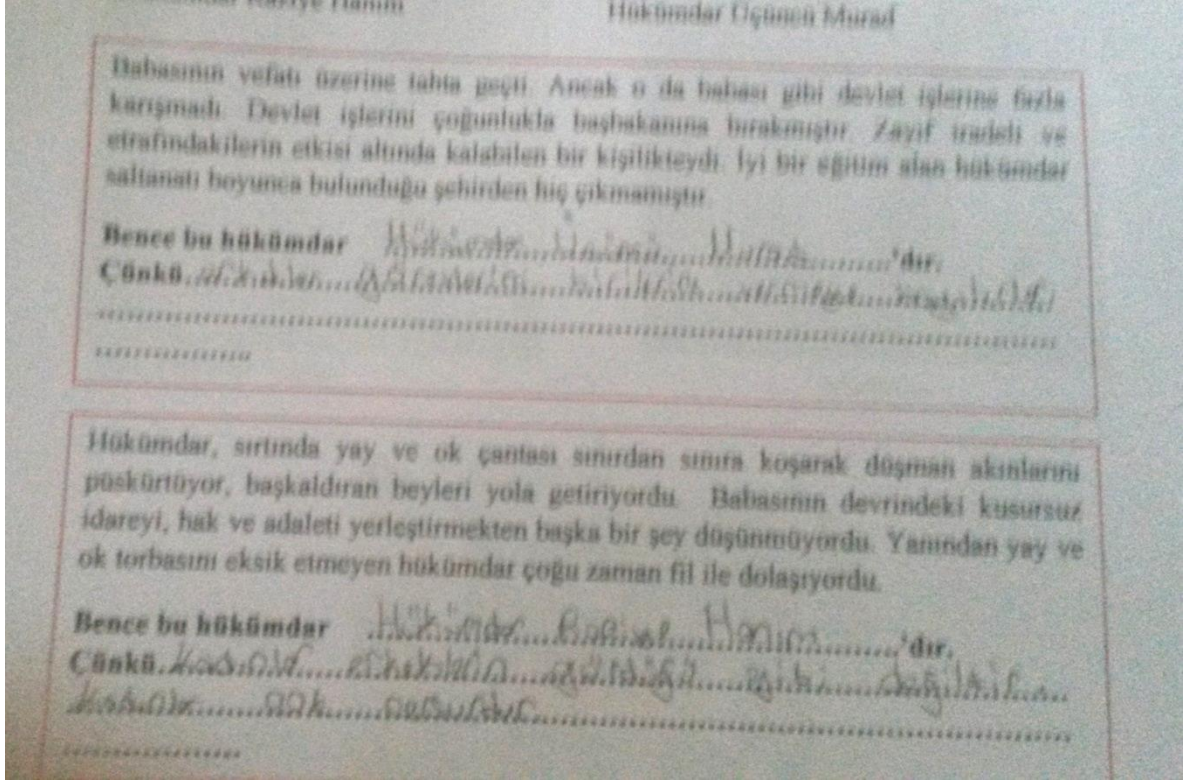 Hanım
Hükümdar Üçüncü Murad
Babasının vefatı üzerine tahta geçti. Ancak o da babası gibi devlet işlerine fazla
karışmadı. Devlet işlerini çoğunlukla başbakanına bırakmıştır. Zayıf iradeli ve
etrafındakilerin etkisi altında kalabilen bir kişilikteydi. İyi bir eğitim alan hükümdar
saltanatı boyunca bulunduğu şehirden hiç çıkmamıştır.
Bence bu hükümdar Hükümdar Murat 'dır.
Çünkü
Hükümdar, sırtında yay ve ok çantası sınırdan sınıra koşarak düşman akınlarını
püskürtüyor, başkaldıran beyleri yola getiriyordu. Babasının devrindeki kusursuz
idareyi, hak ve adaleti yerleştirmekten başka bir şey düşünmüyordu. Yanından yay ve
ok torbasını eksik etmeyen hükümdar çoğu zaman fil ile dolaşıyordu.
Bence bu hükümdar Hükümdar Hanım 'dır.
Çünkü gibi değildir.